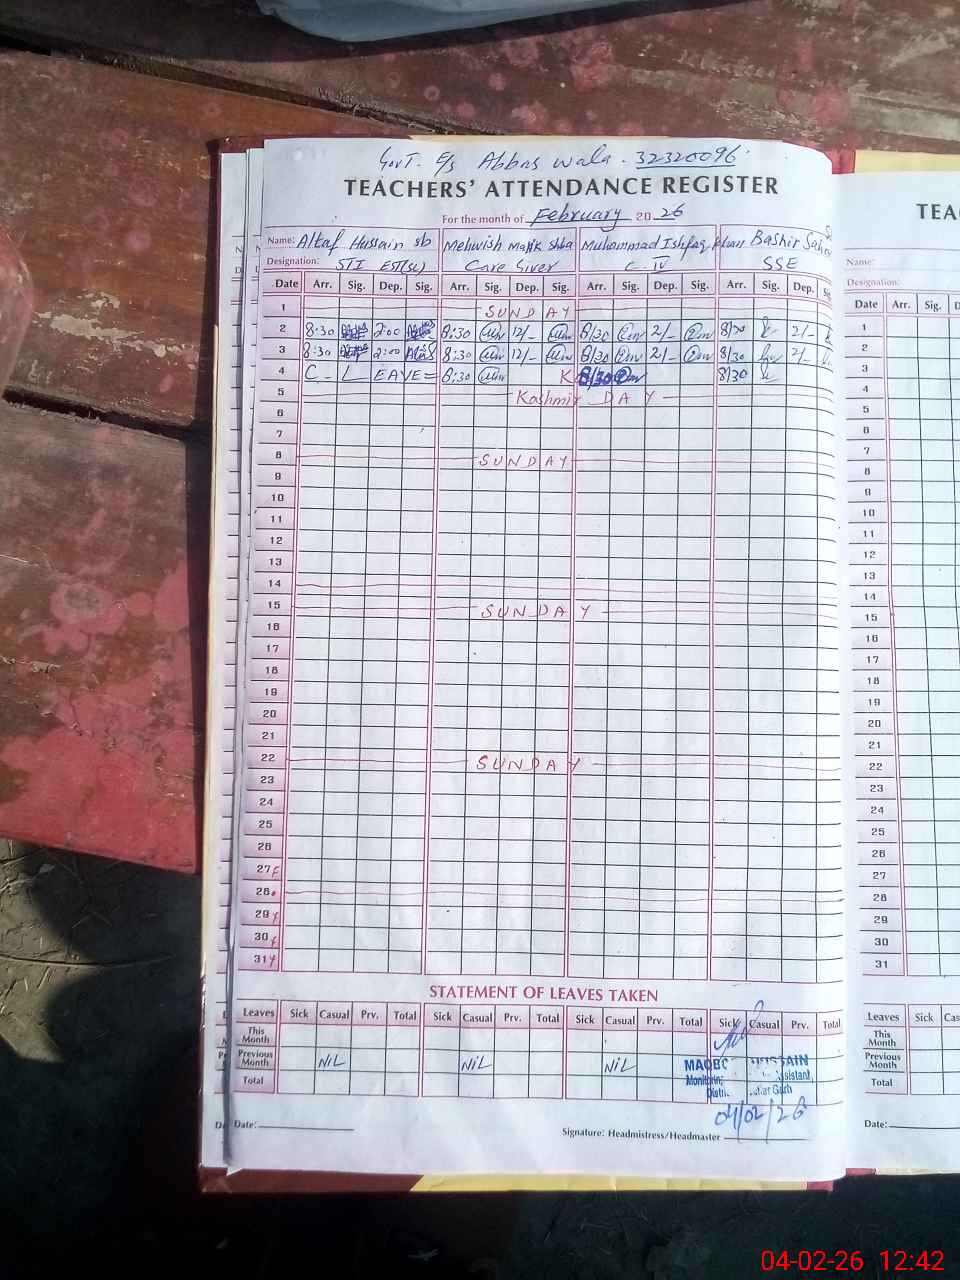 Govt. E/s Abbas wala . 32320096.
TEACHERS' ATTENDANCE REGISTER
For the month of February 20 26
Name: Altaf Hussain sb Mehwish Malik shba Muhammad Ishfaq khan Bashir
Designation: EST(sc) Care Giver C. IV SSE
Date Arr. Sig. Dep. Sig. Arr. Sig. Dep. Sig. Arr. Sig. Dep. Sig. Arr. Sig. Dep.
1 SUNDAY
2 8:30 2:00 8:30 12/- 8/30 2/- 8/30 2/-
3 8:30 2:00 8:30 12/- 8/30 2/- 8/30 2/-
4 C - LEAVE = 8:30 K 8/30 8/30
5 Kashmir DAY
6
7
8 SUNDAY
9
10
11
12
13
14
15 SUNDAY
16
17
18
19
20
21
22 SUNDAY
23
24
25
26
27
28
29
30
31
STATEMENT OF LEAVES TAKEN
Leaves Sick Casual Prv. Total Sick Casual Prv. Total Sick Casual Prv. Total Sick Casual Prv. Total
This Month
Previous Month NIL NIL NIL
Total
HUSSAIN
Assistant,
Garh
04/02/26
Date:
Signature: Headmistress/Headmaster
TEA
Name:
Designation:
Date Arr. Sig. D
1
2
3
4
5
6
7
8
9
10
11
12
13
14
15
16
17
18
19
20
21
22
23
24
25
26
27
28
29
30
31
Leaves Sick Cas
This Month
Previous Month
Total
Date:
04-02-26 12:42